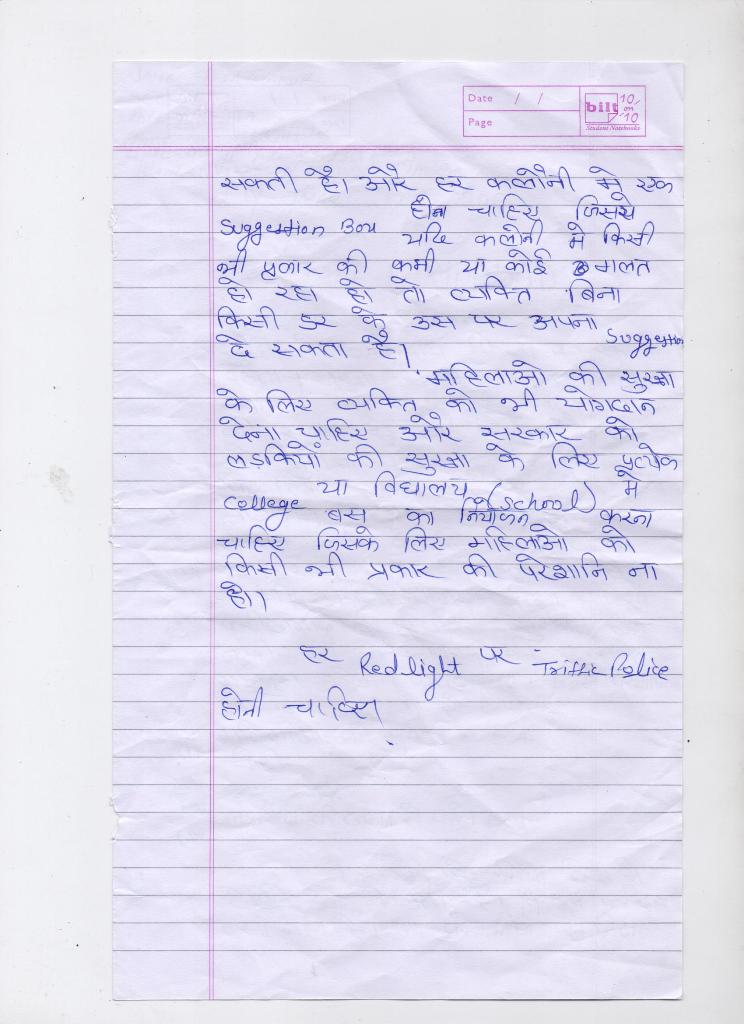 Date / /
Page
bilt 10 on 10
Student Notebooks
सकती है। और हर कलोनी मे एक
Suggestion Box होना चाहिए जिससे
यदि कलोनी मे किसी
भी प्रकार की कमी या कोई गलत
हो रहा हो तो व्यक्ति बिना
किसी डर के उस पर अपना Suggestion
दे सकता है।
महिलाओ की सुरक्षा
के लिए व्यक्ति को भी योगदान
देना चाहिए और सरकार को
लड़कियों की सुरक्षा के लिए प्रत्येक
College या विद्यालय (School) मे
बस का नियोजन करना
चाहिए जिसके लिए महिलाओ को
किसी भी प्रकार की परेशानि ना
हो।
हर Redlight पर Triffic Police
होनी चाहिए।